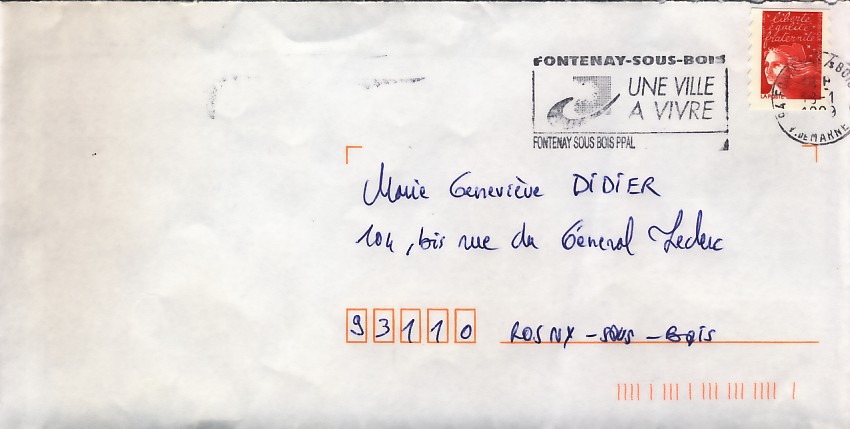 liberté
égalité
fraternité
LA POSTE
FONTENAY-SOUS-BOIS
UNE VILLE
A VIVRE
FONTENAY SOUS BOIS PPAL
V.DE MARNE
Marie Geneviève DIDIER
104, bis rue du Général Leclerc
93110 ROSNY-SOUS-BOIS